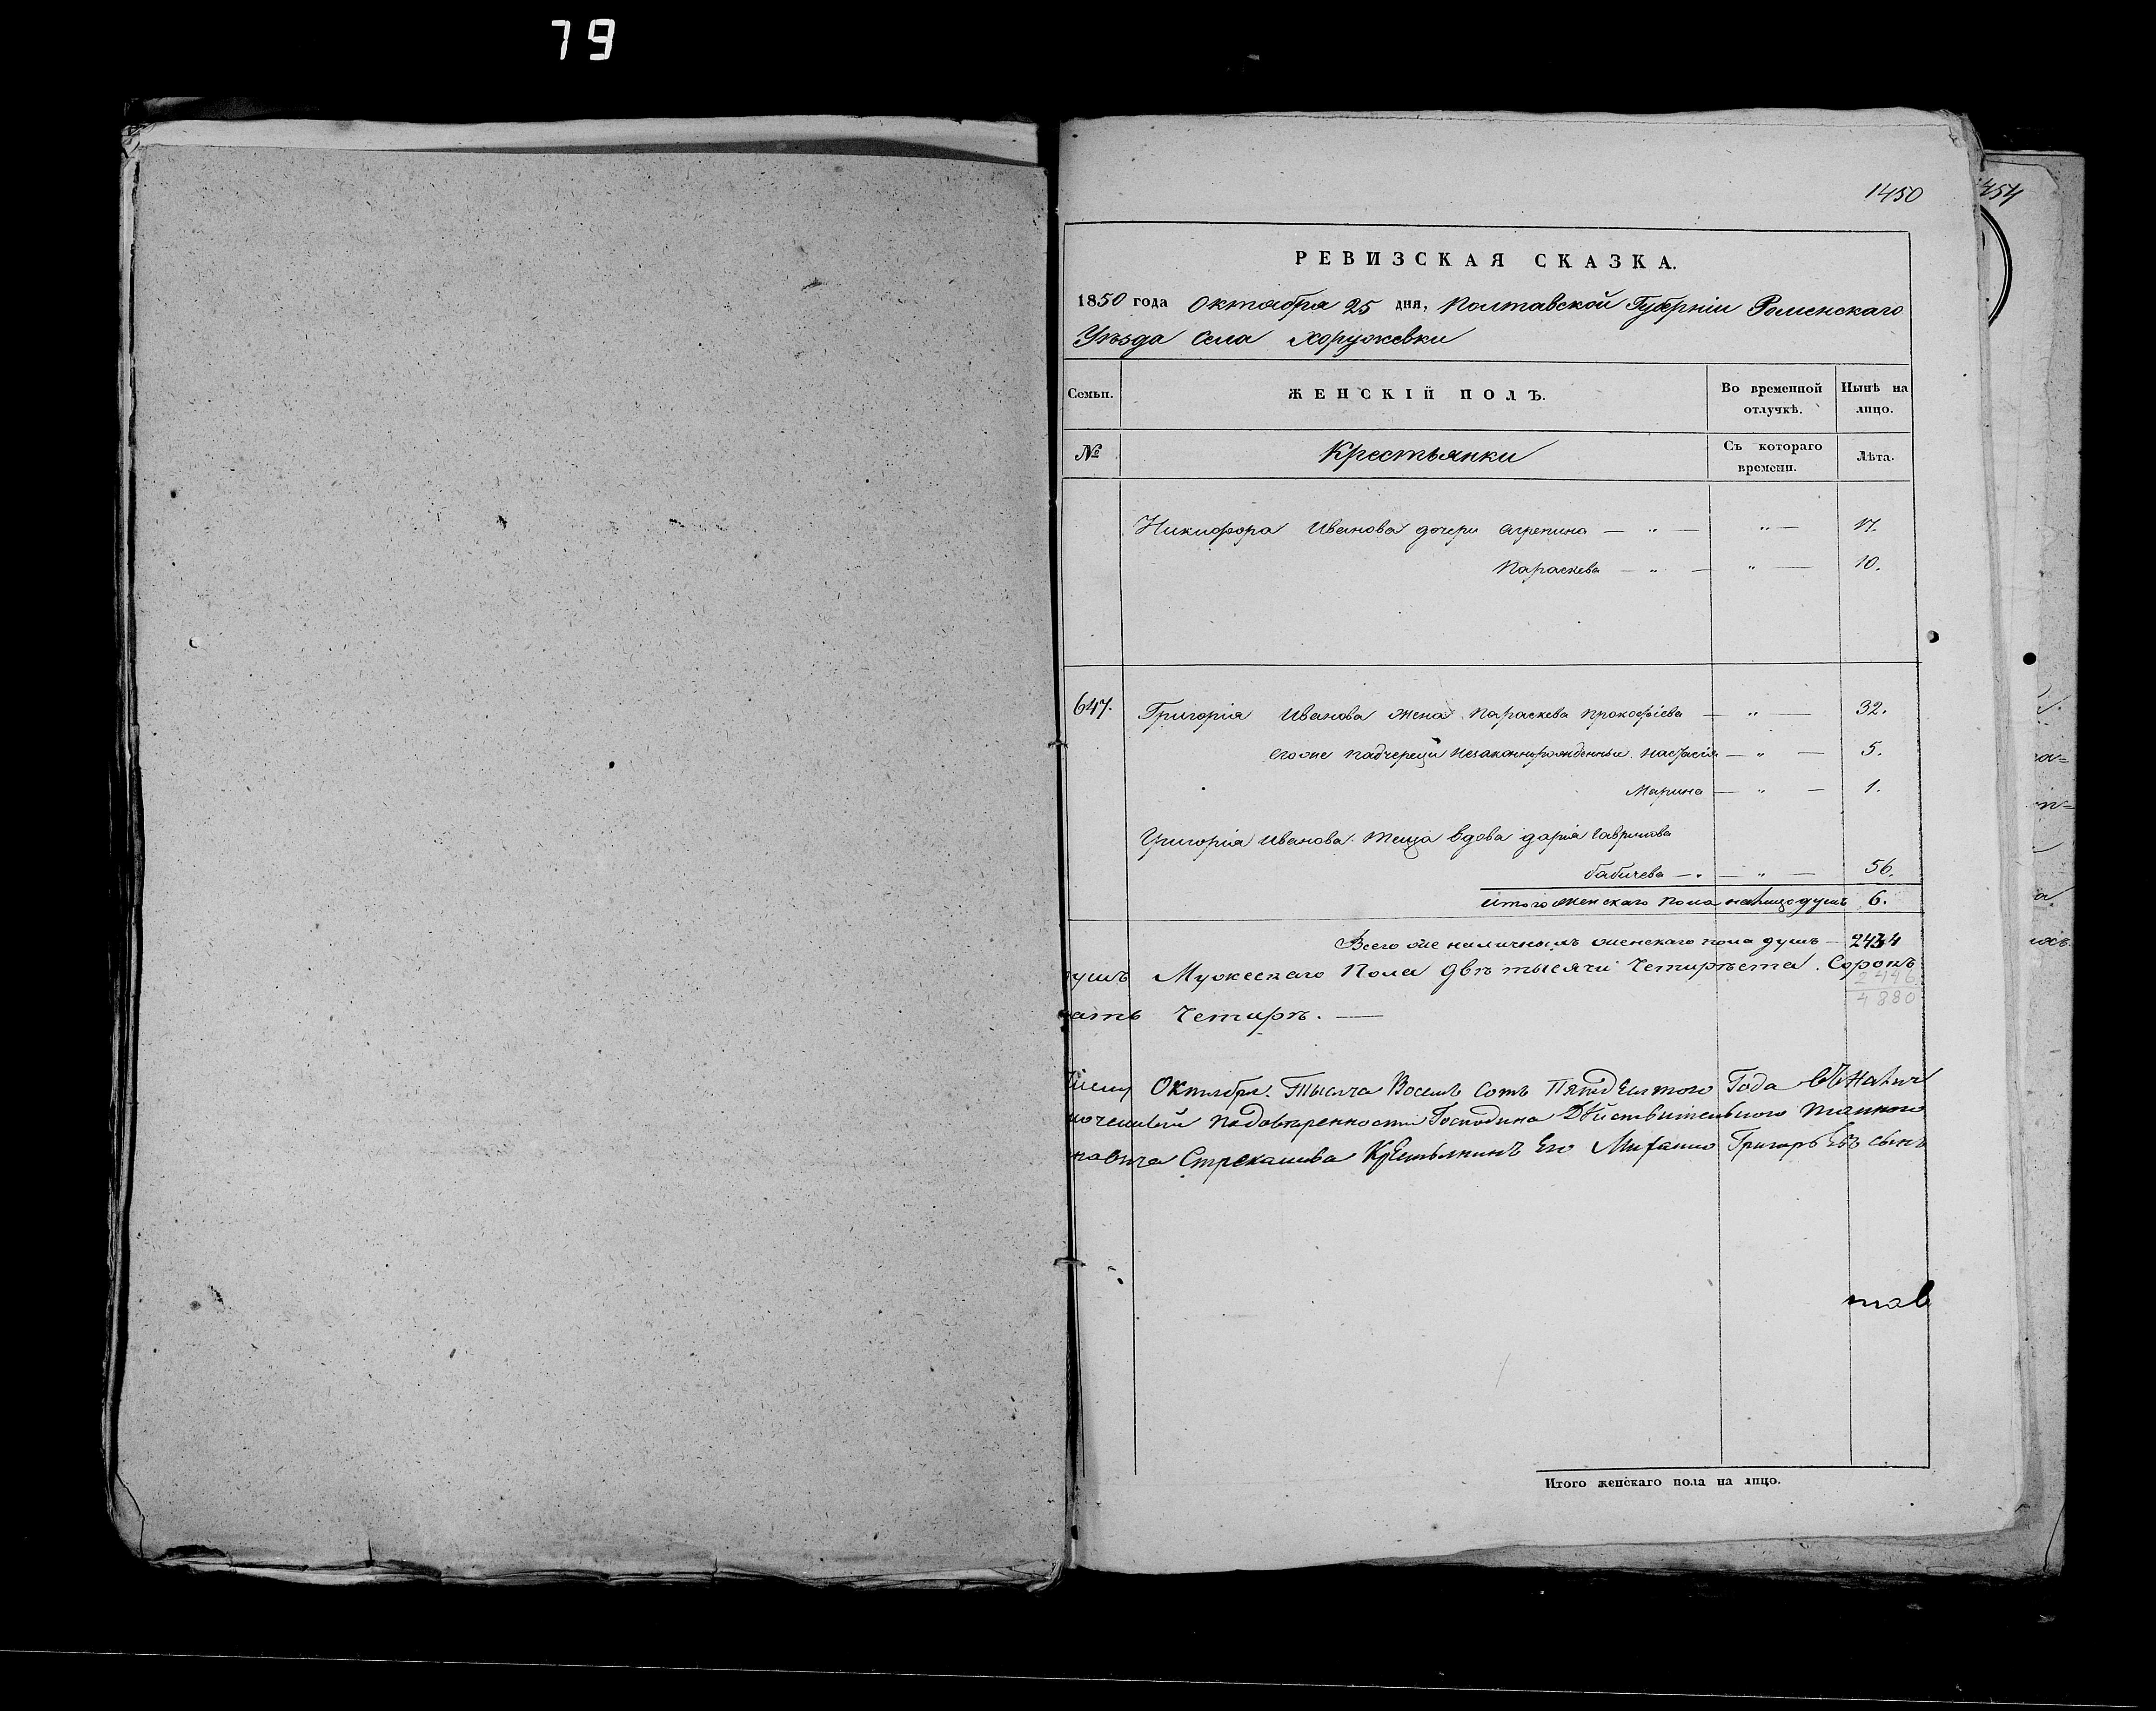 79
1450
454
РЕВИЗСКАЯ СКАЗКА.
1850 года Октября 25 дня, Полтавской Губерніи Роменскаго
Уѣзда Села Хоружевки
Семьи. ЖЕНСКІЙ ПОЛЪ. Во временной отлучкѣ. Нынѣ на лицо.
№ Крестьянки Съ котораго времени. Лѣта.
Никифора Иванова дочери Агрепина — „ — „ — 17.
Параскева — „ — „ — 10.
647. Григорія Иванова жена Параскева Прокофіева — „ — 32.
его же падчерецы незаконнорожденныи. Настасія — „ — 5.
Марина — „ — 1.
Григорія Иванова теща вдова дарія Гаврилова
бабичева — „ — „ — 56.
Итого женскаго пола налицо душъ 6.
Всего же наличныхъ женскаго пола душъ — 2434
ушъ Мужескаго Пола двѣ тысячи Четыреста. Сорокъ
2446
4880
ать Четырѣ. —
Октября. Тысяча Восемъ Сотъ Пятдесятого Года
подовѣренности Господина Дѣйствительного тайного
новича Стрекалова Крестьянинъ Его Григорьевъ сынъ
тов
Итого женскаго пола на лицо.